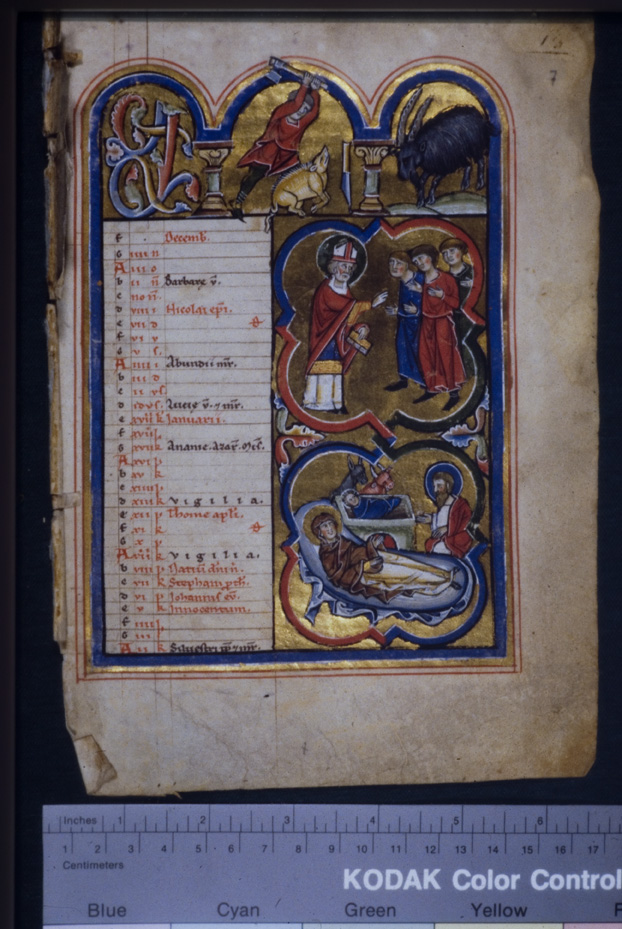 7
KL
f Decemb.
G iiii n
A iii o
b ii n Barbare v.
c no n
d viii i Nicolai epi.
e vii d
f vi v
G v s.
A iiii i Abundii mr.
b iii d
c ii
d Lucie v. 7 mr.
e xviiii k Januarii.
f xviii
G xvii k Ananie. Azar. Mis.
A xvi p
b xv k
c xiiii p
d xiii k vigilia.
e xii p Thome apli.
f xi k
G x p
A viiii k vigilia.
b viii p
c vii k Stephani
d vi p Johannis ev.
e v k Innocentum.
f iiii p
G iii
A ii k Silvestri
7
Inches 1 2 3 4 5 6
1 2 3 4 5 6 7 8 9 10 11 12 13 14 15 16 17
Centimeters
KODAK Color Control
Blue Cyan Green Yellow